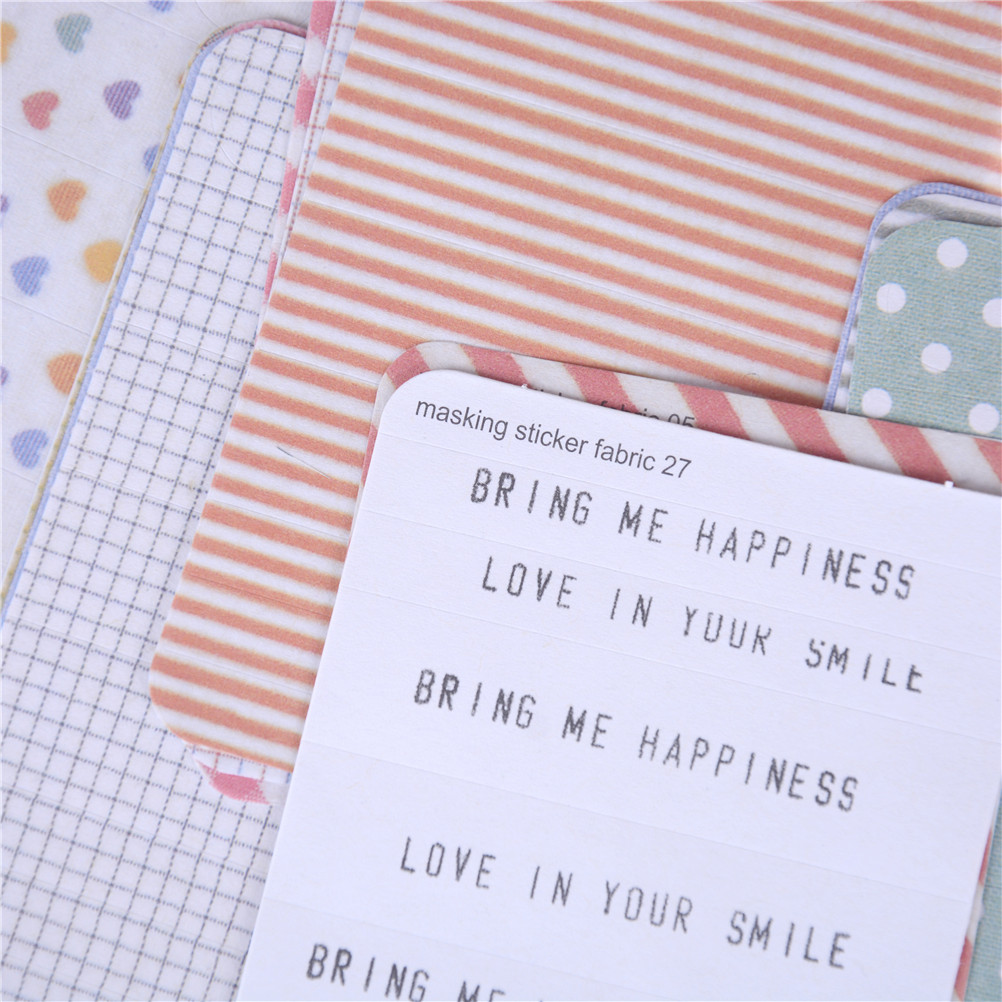 fabric 05
masking sticker fabric 27
BRING ME HAPPINESS
LOVE IN YOUR SMILE
BRING ME HAPPINESS
LOVE IN YOUR SMILE
BRING ME